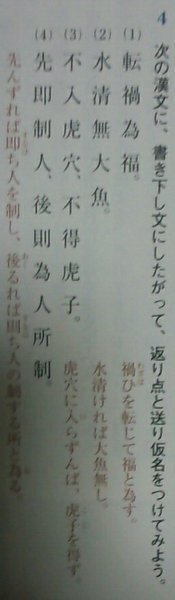 4 次の漢文に、書き下し文にしたがって、返り点と送り仮名をつけてみよう。
(1) 転禍為福。 禍ひを転じて福と為す。
(2) 水清無大魚。 水清ければ大魚無し。
(3) 不入虎穴、不得虎子。 虎穴に入らずんば、虎子を得ず。
(4) 先即制人、後則為人所制。
先んずれば即ち人を制し、後るれば則ち人の制する所と為る。